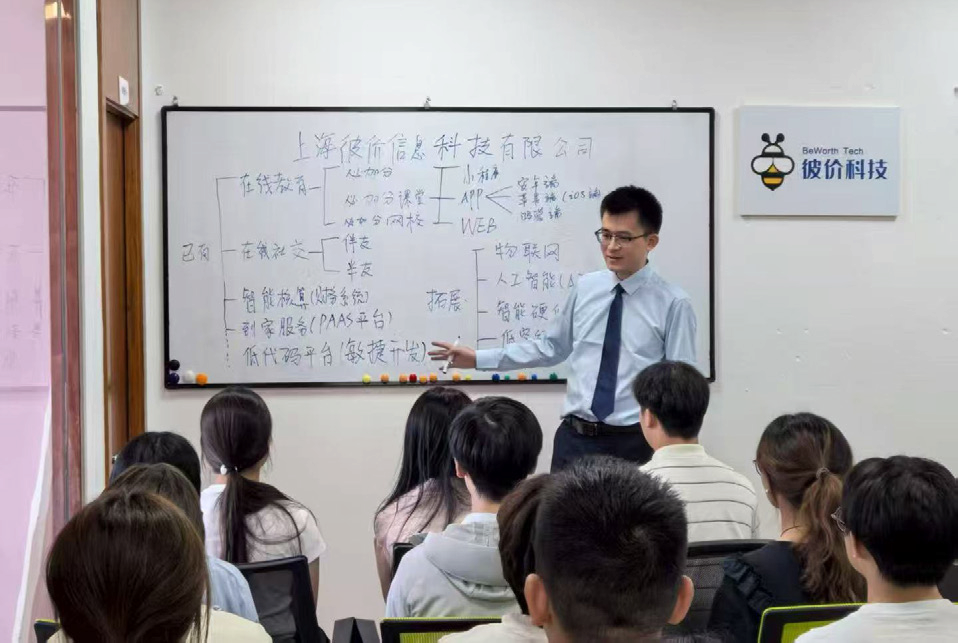 上海彼价信息科技有限公司
已有
在线教育
从加分
从加分课堂
从加分网校
小程序
APP
WEB
安卓端
苹果端(iOS端)
在线社交
伴友
半友
智能核算(财务系统)
到家服务(PAAS平台)
低代码平台(敏捷开发)
拓展
物联网
人工智能(A
智能硬
低
BeWorth Tech
彼价科技